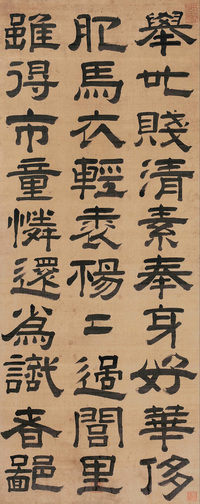 舉世賤清素奉身好華侈
肥馬衣輕裘揚〻過閭里
雖得市童憐還為識者鄙